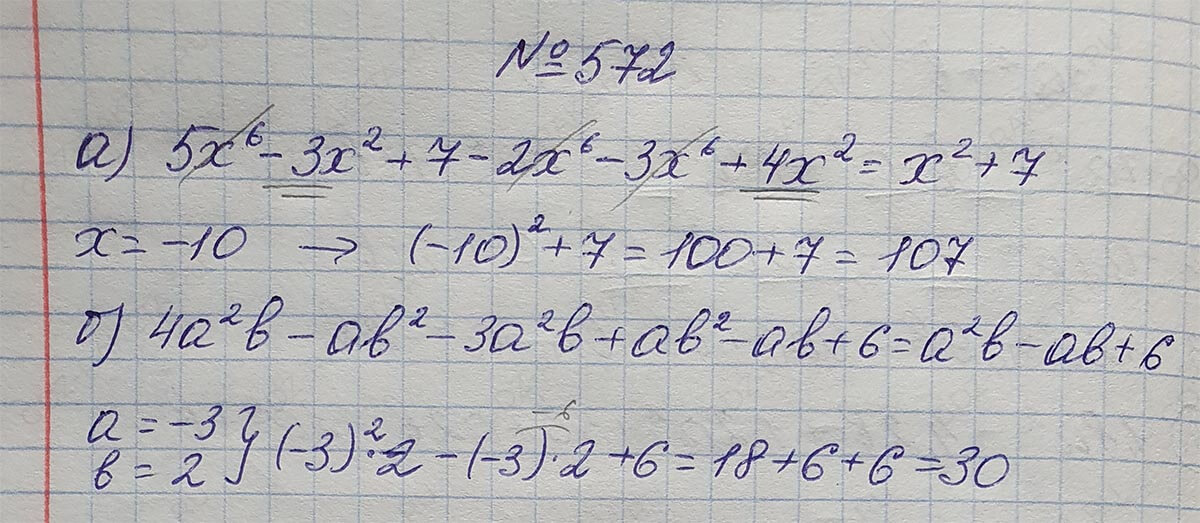 №572
а) 5x⁶ - 3x² + 7 - 2x⁶ - 3x⁶ + 4x² = x² + 7
x = -10 → (-10)² + 7 = 100 + 7 = 107
б) 4a²b - ab² - 3a²b + ab² - ab + 6 = a²b - ab + 6
-6
a = -3
b = 2 } (-3)² · 2 - (-3) · 2 + 6 = 18 + 6 + 6 = 30